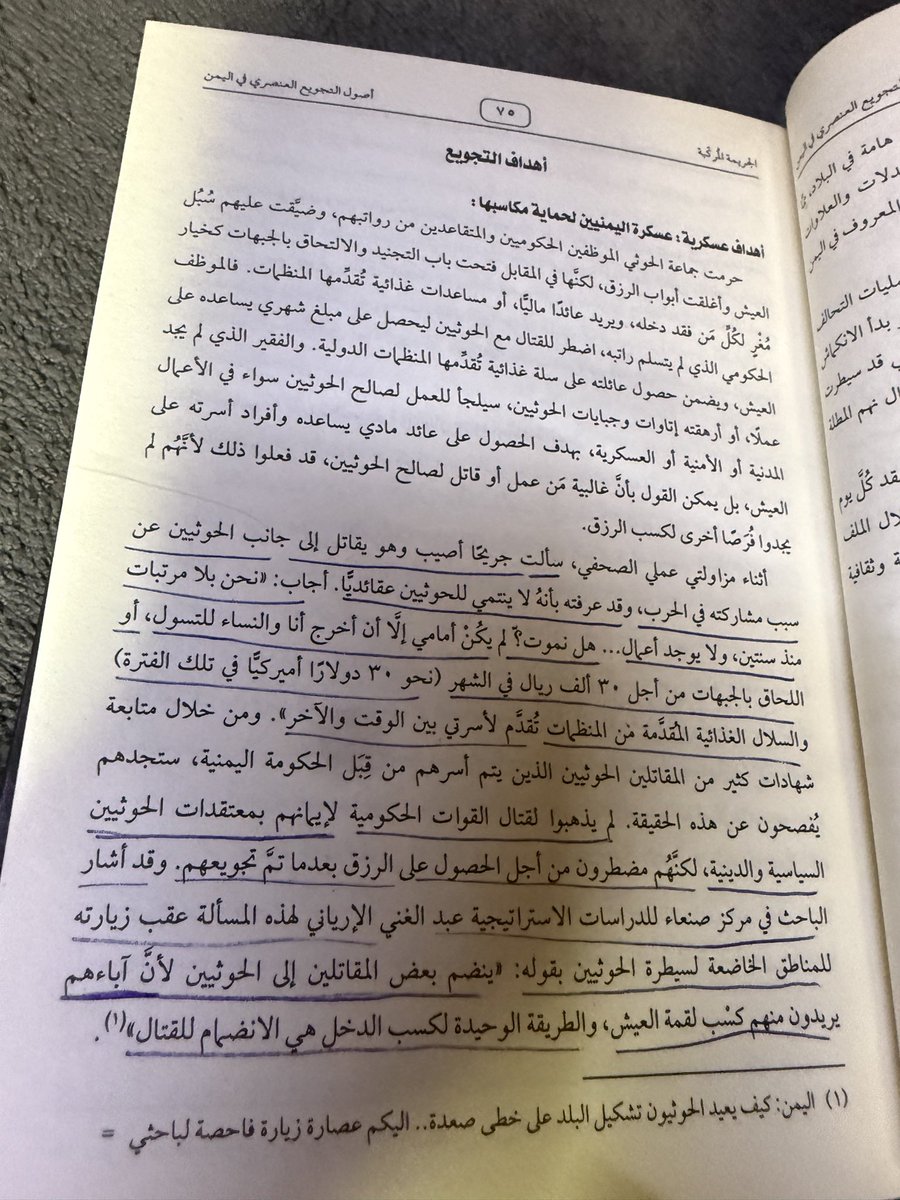 أصول التجويع العنصري في اليمن
٧٥
الجريمة المُركَّبة
أهداف التجويع
أهداف عسكرية: عسكرة اليمنيين لحماية مكاسبها:
حرمت جماعة الحوثي الموظفين الحكوميين والمتقاعدين من رواتبهم، وضيَّقت عليهم سُبُل
العيش وأغلقت أبواب الرزق، لكنَّها في المقابل فتحت باب التجنيد والالتحاق بالجبهات كخيار
مُغْرٍ لكُلِّ مَن فقد دخله، ويريد عائدًا ماليًّا، أو مساعدات غذائية تُقدِّمها المنظمات. فالموظف
الحكومي الذي لم يتسلم راتبه، اضطر للقتال مع الحوثيين ليحصل على مبلغ شهري يساعده على
العيش، ويضمن حصول عائلته على سلة غذائية تُقدِّمها المنظمات الدولية. والفقير الذي لم يجد
عملًا، أو أرهقته إتاوات وجبايات الحوثيين، سيلجأ للعمل لصالح الحوثيين سواء في الأعمال
المدنية أو الأمنية أو العسكرية، بهدف الحصول على عائد مادي يساعده وأفراد أسرته على
العيش، بل يمكن القول بأنَّ غالبية مَن عمل أو قاتل لصالح الحوثيين، قد فعلوا ذلك لأنَّهُم لم
يجدوا فُرَصًا أخرى لكسب الرزق.
أثناء مزاولتي عملي الصحفي، سألت جريحًا أصيب وهو يقاتل إلى جانب الحوثيين عن
سبب مشاركته في الحرب، وقد عرفته بأنهُ لا ينتمي للحوثيين عقائديًّا. أجاب: «نحن بلا مرتبات
منذ سنتين، ولا يوجد أعمال... هل نموت؟ لم يكُنْ أمامي إلَّا أن أخرج أنا والنساء للتسول، أو
اللحاق بالجبهات من أجل ٣٠ ألف ريال في الشهر (نحو ٣٠ دولارًا أميركيًّا في تلك الفترة)
والسلال الغذائية المُقدَّمة من المنظمات تُقدَّم لأسرتي بين الوقت والآخر». ومن خلال متابعة
شهادات كثير من المقاتلين الحوثيين الذين يتم أسرهم من قِبَل الحكومة اليمنية، ستجدهم
يُفصحون عن هذه الحقيقة. لم يذهبوا لقتال القوات الحكومية لإيمانهم بمعتقدات الحوثيين
السياسية والدينية، لكنَّهُم مضطرون من أجل الحصول على الرزق بعدما تمَّ تجويعهم. وقد أشار
الباحث في مركز صنعاء للدراسات الاستراتيجية عبد الغني الإرياني لهذه المسألة عقب زيارته
للمناطق الخاضعة لسيطرة الحوثيين بقوله: «ينضم بعض المقاتلين إلى الحوثيين لأنَّ آباءهم
يريدون منهم كسْب لقمة العيش، والطريقة الوحيدة لكسب الدخل هي الانضمام للقتال»(١).
(١) اليمن: كيف يعيد الحوثيون تشكيل البلد على خطى صعدة.. اليكم عصارة زيارة فاحصة لباحثي =
هامة في البلاد،
دلات والعلاوات
المعروف في اليمن
مليات التحالف
بدأ الانكماش
ب قد سيطرت
ال نهم المطلة
قد كُلَّ يوم
لال الملف
ة وثقافية